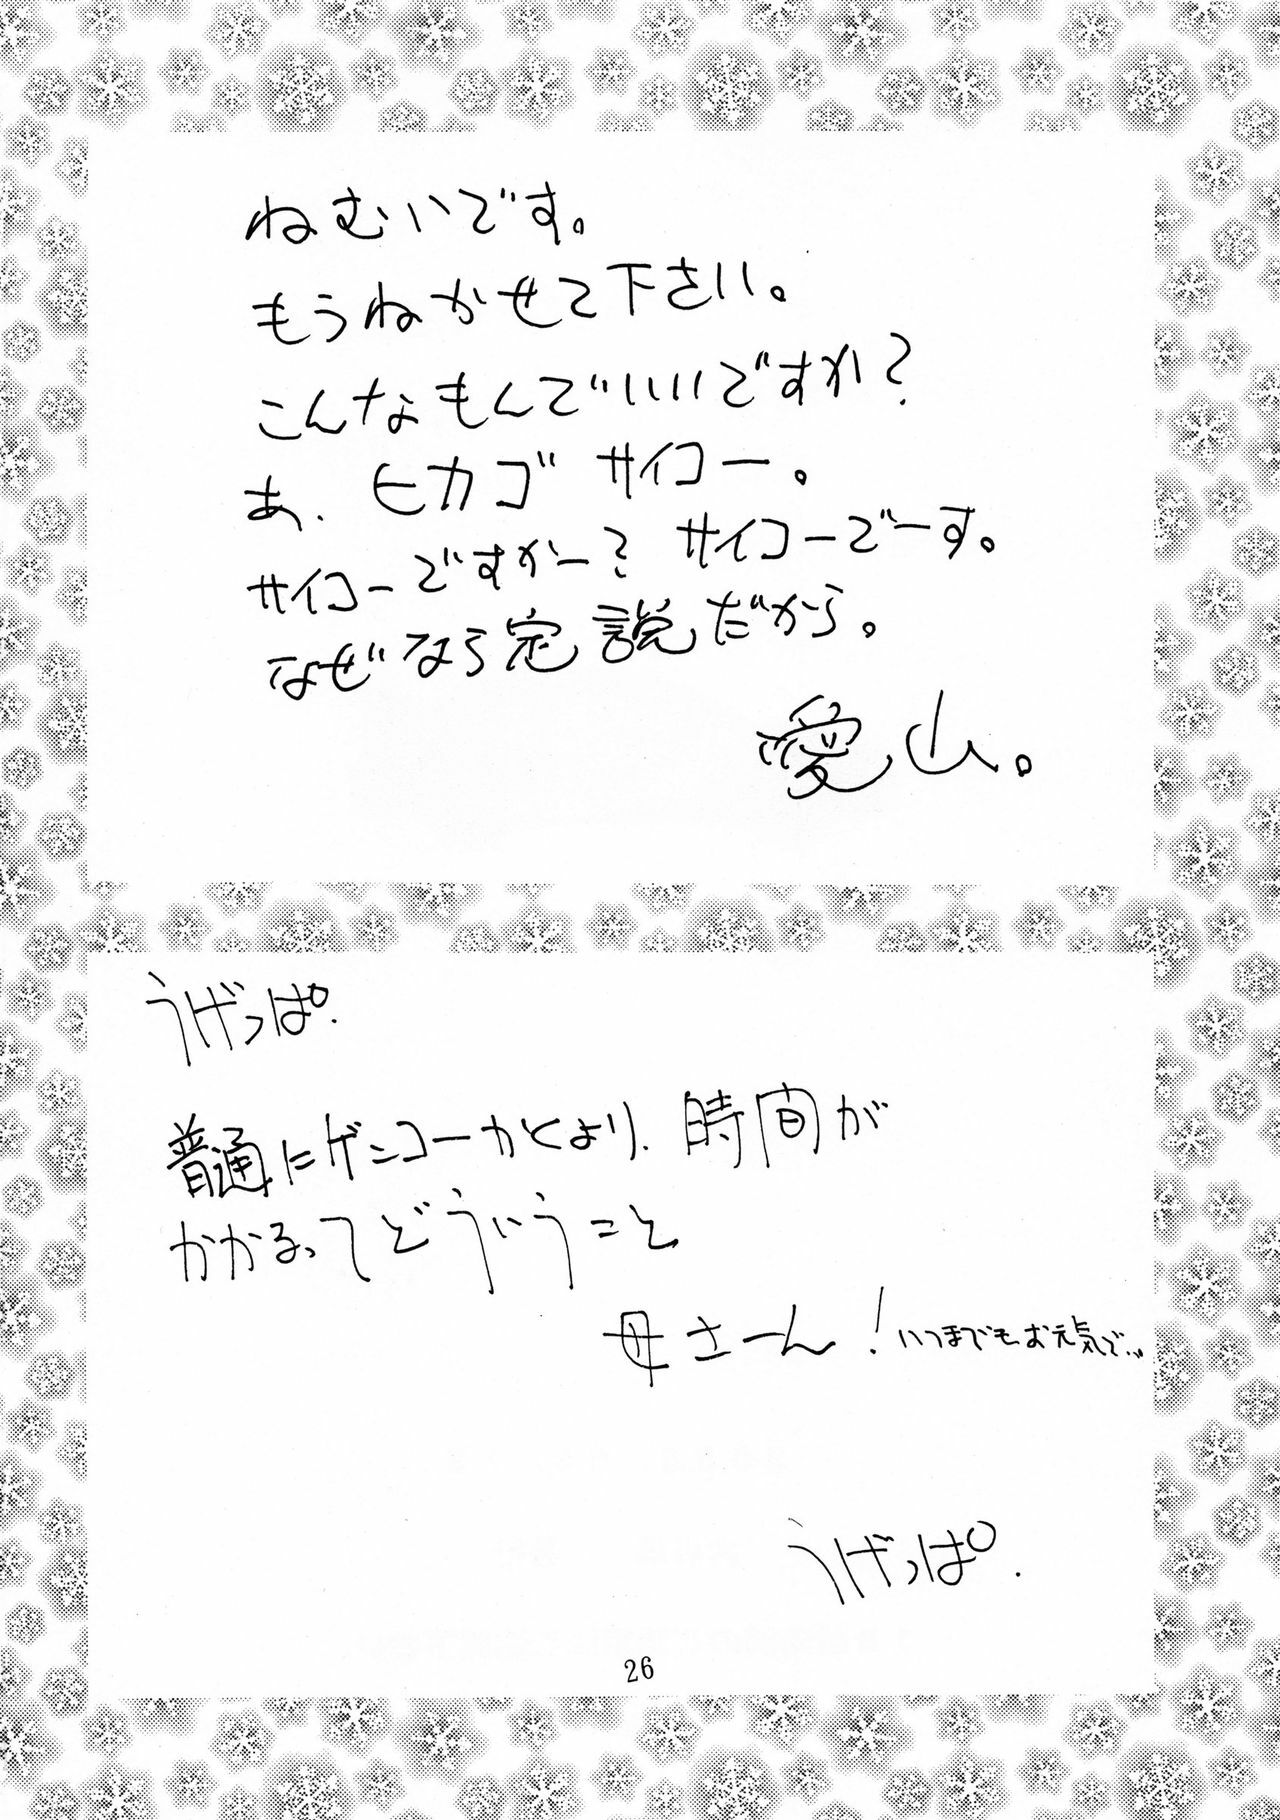 ねむいです。
もうねかせて下さい。
こんなもんでいいですか？
あ、ヒカゴ サイコー。
サイコーですかー？ サイコーでーす。
なぜなら定説だから。
愛山。
うげっぱ.
普通にゲンコーかくより、時間が
かかるってどういうこと
母さーん！いつまでもお元気で…
うげっぱ.
26